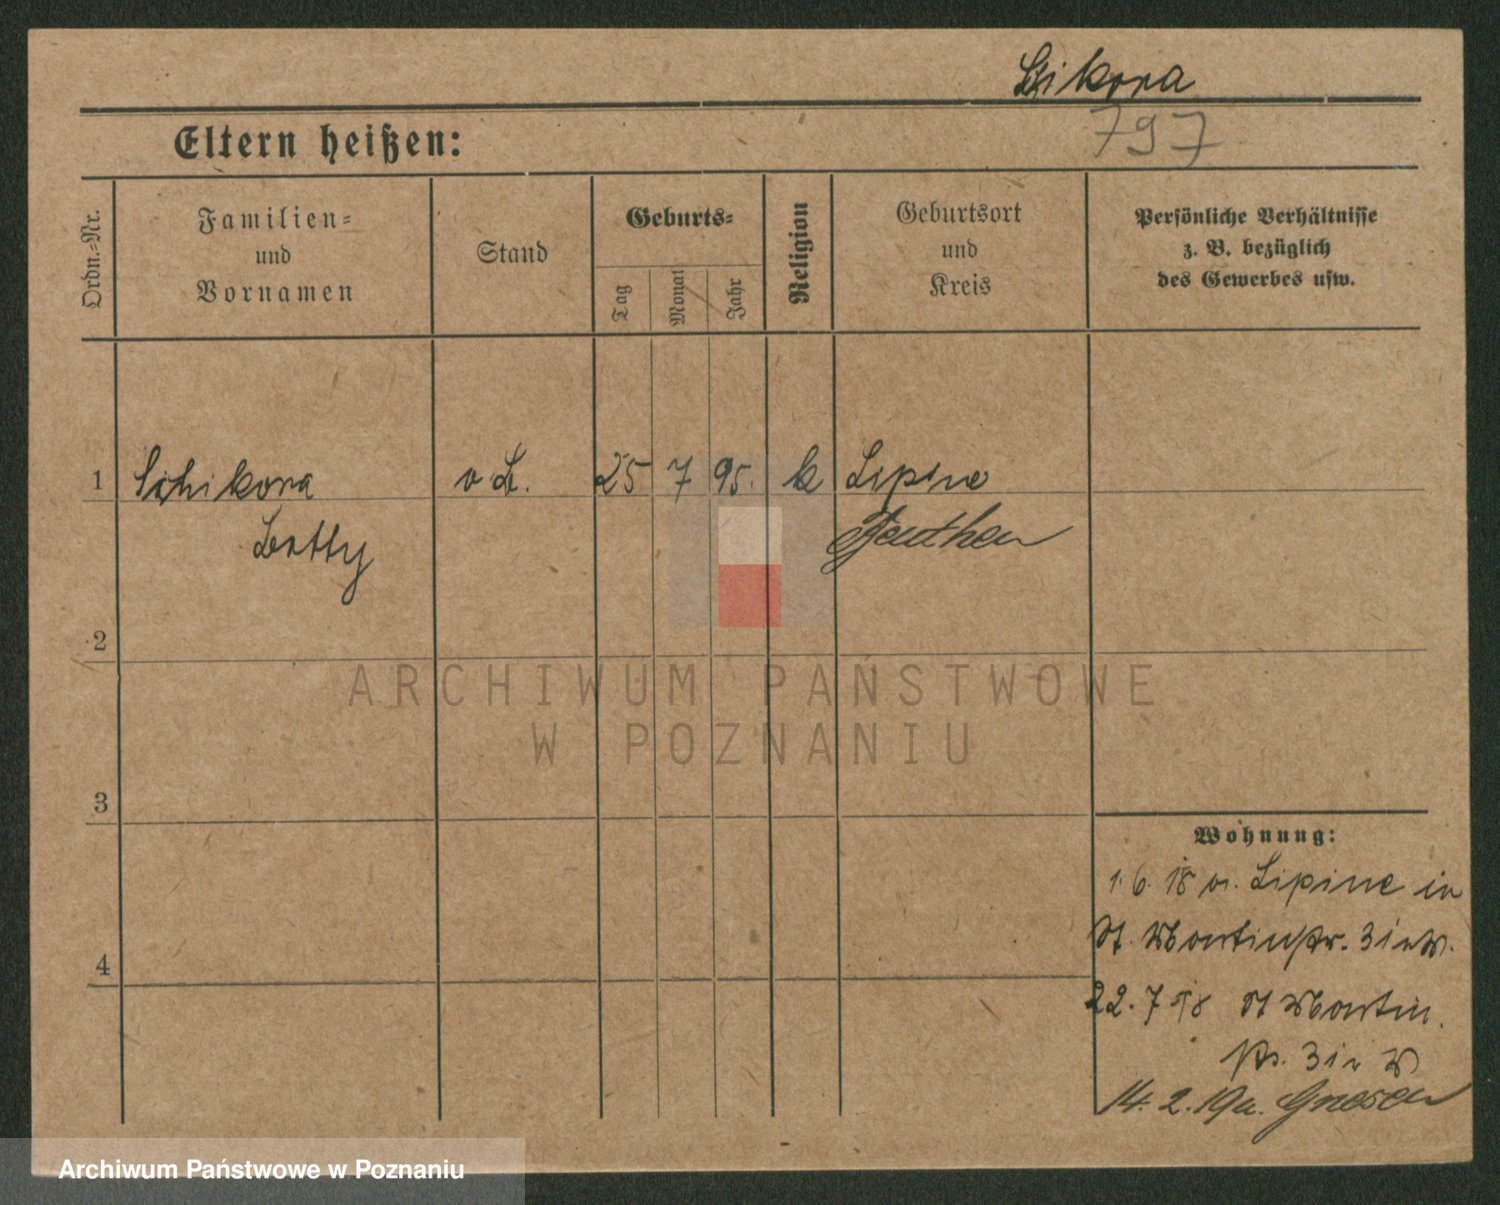 Sikora
Eltern heißen:
797
Ordn.-Nr.
Familien-
und
Vornamen
Stand
Geburts-
Tag
Monat
Jahr
Religion
Geburtsort
und
Kreis
Persönliche Verhältnisse
z. B. bezüglich
des Gewerbes usw.
1 Schikora o. L. 25 7 95. k Lipine
Lotty Beuthen
2
3
4
ARCHIWUM PAŃSTWOWE
W POZNANIU
Wohnung:
1. 6. 18 v. Lipine in
St. Martinstr. 31
22. 7 18 St Martin
31
14. 2. 19 n. Gnesen
Archiwum Państwowe w Poznaniu